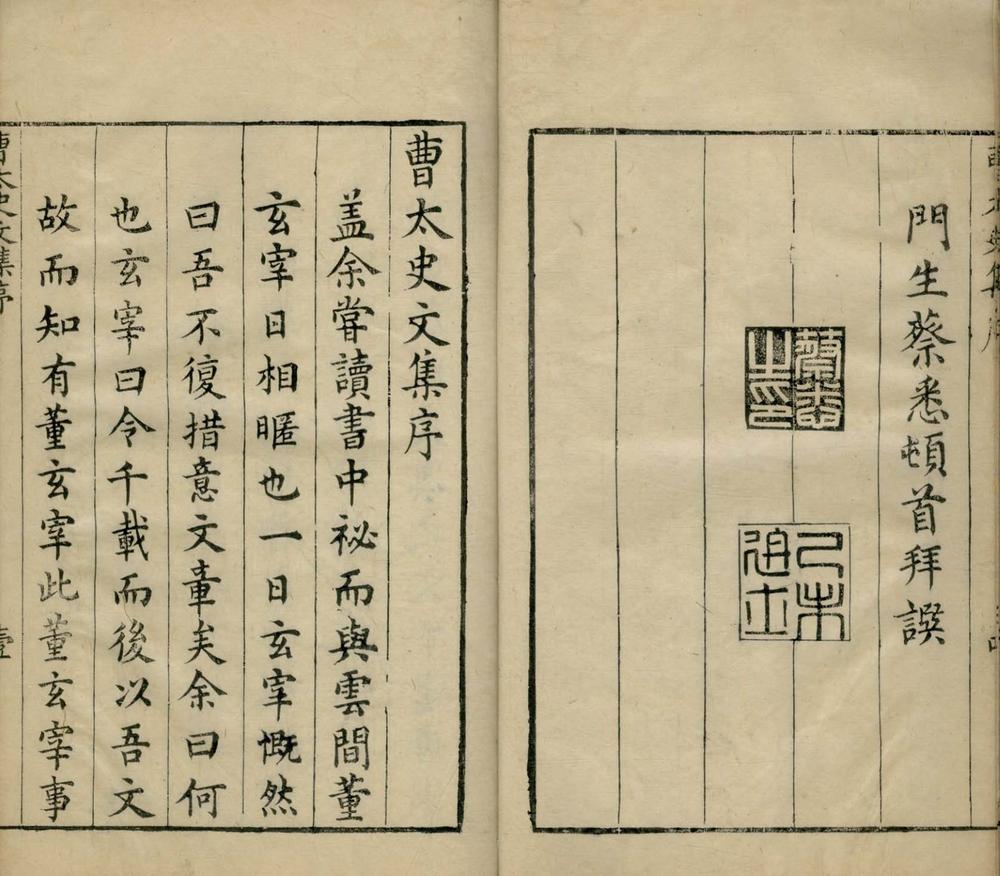 門生蔡悉頓首拜譔
蔡悉之印
己未進士
曹太史文集序
蓋余嘗讀書中祕而與雲間董
玄宰日相暱也一日玄宰慨然
曰吾不復措意文章矣余曰何
也玄宰曰令千載而後以吾文
故而知有董玄宰此董玄宰事
曹太史文集序
壹